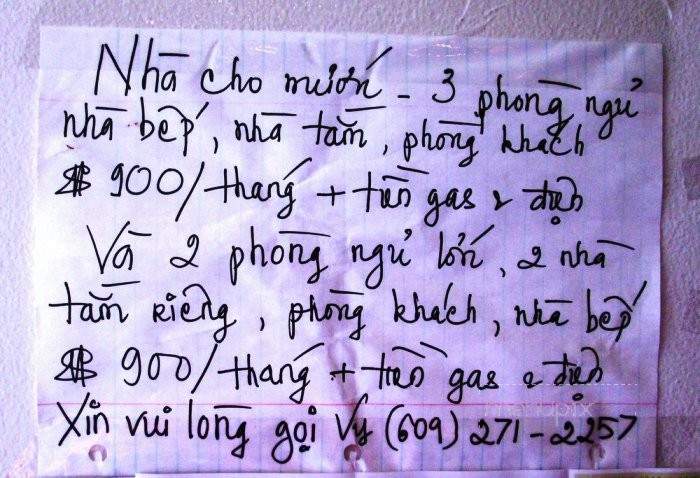 Nhà cho mướn - 3 phòng ngủ
nhà bếp, nhà tắm, phòng khách
$900/tháng + tiền gas & điện
Và 2 phòng ngủ lớn, 2 nhà
tắm riêng, phòng khách, nhà bếp
$900/tháng + tiền gas & điện
Xin vui lòng gọi Vy (609) 271-2257